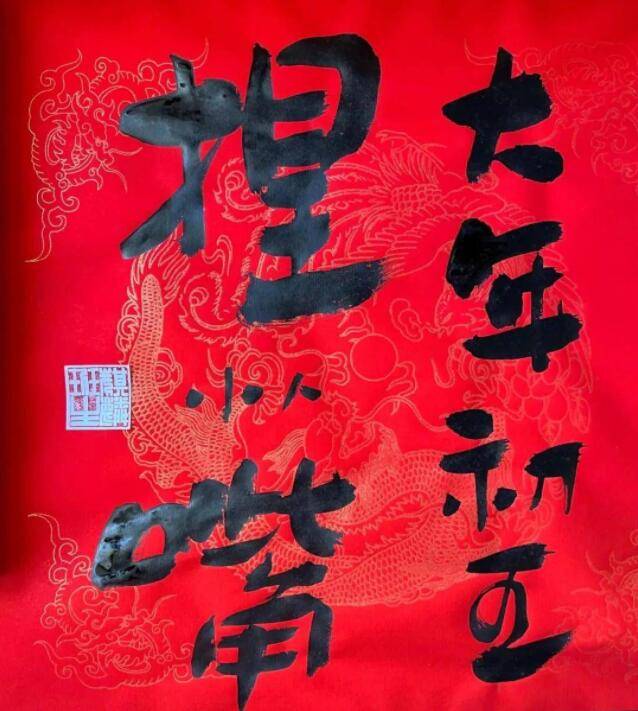 大年初五
捏小人嘴